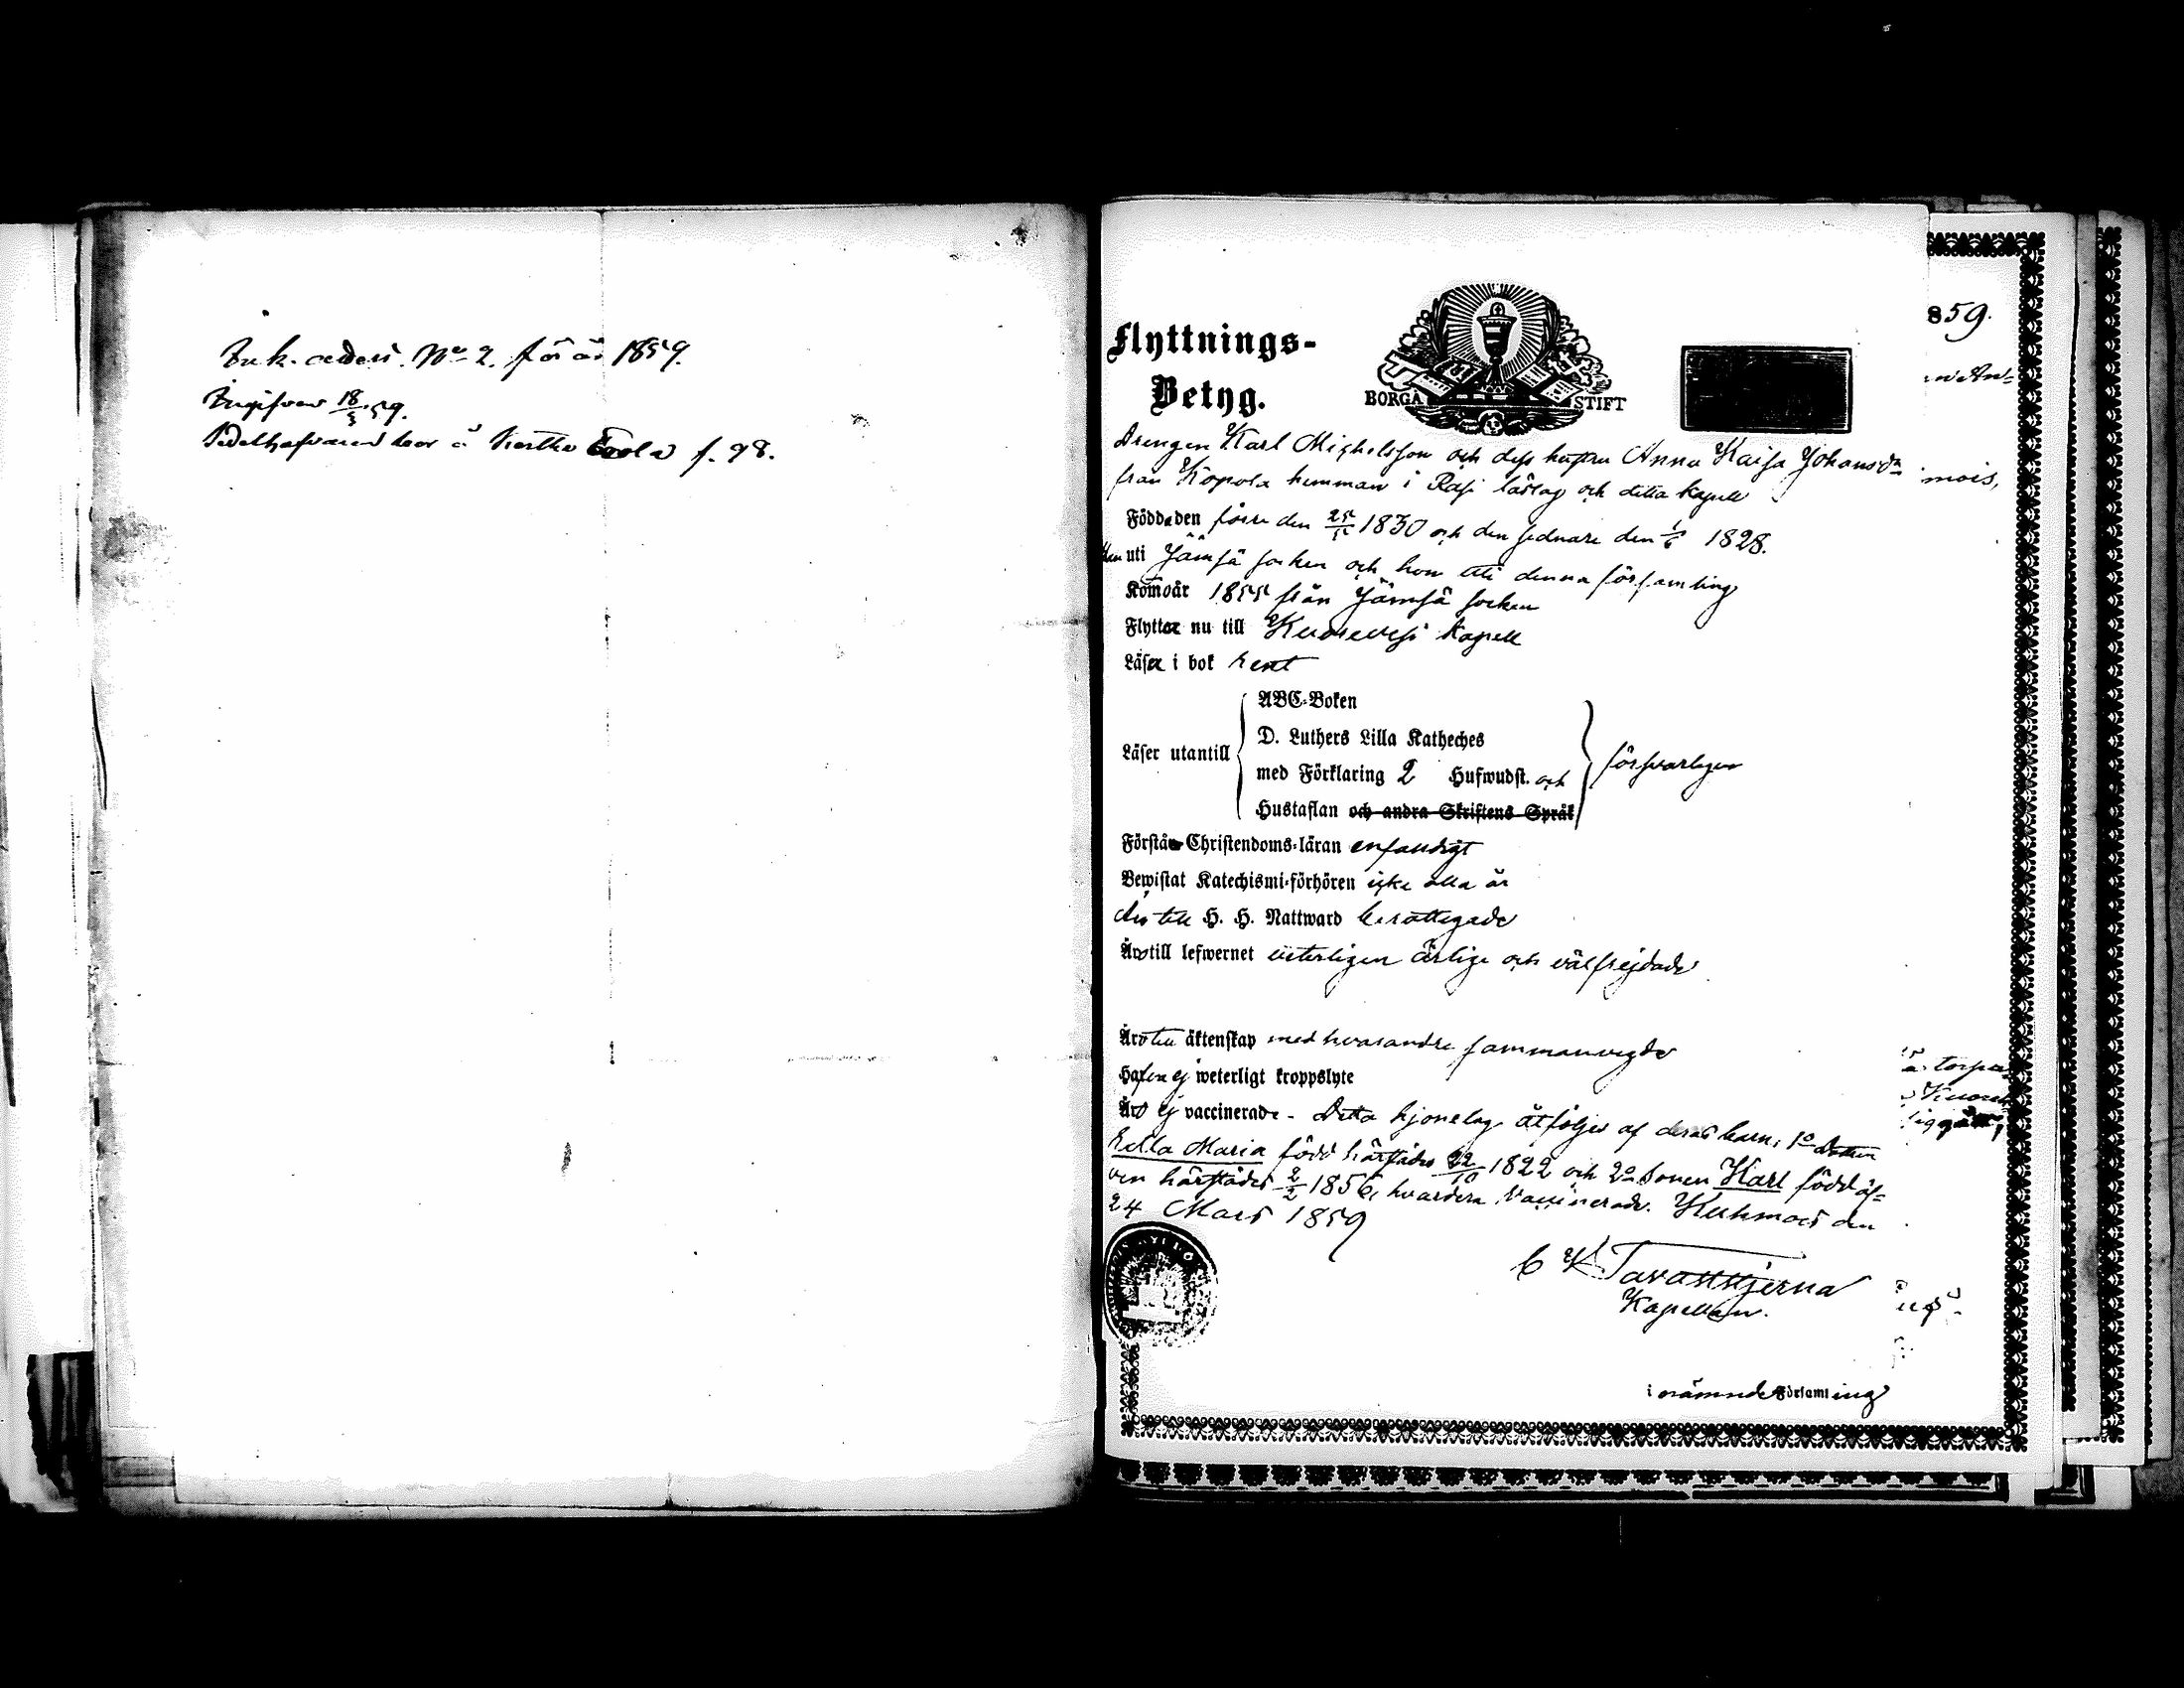 Ink. attest. No 2. för år 1859.
Ingifven 18/3 59.
bor å f. 98.
Flyttnings-
Betyg.
BORGÅ STIFT
859.
Drengen Karl Michelsson och dess hustru Anna Kaisa Johansdr
från Köpola hemman i Rasi låslag och detta kapell
mois,
Födde den förre den 25/12 1830 och den sednare den 1/6 1828.
Han uti Jämsä socken och hon uti denna församling
Komo år 1855 från Jämsä socken
Flytta nu till Kuorevesi kapell
Läsa i bok rent
ABC-Boken
D. Luthers Lilla Katheches
Läser utantill
med Förklaring 2 Hufwudst. och
försvarligen
Hustaflan och andra Skriftens Språk
Förstå Christendoms-läran enfaldigt
Bewistat Katechismi-förhören icke alla år
Äro till H. H. Nattward berättigade
Äro till lefwernet veterligen ärlige och välfrejdade
Äro till äktenskap med hvarandre sammanvigde
Hafva ej weterligt kroppslyte
Äro ej vaccinerade - Detta hjonelag åtföljes af deras barn; 1o Dottren
Eella Maria född härstädes 22/10 1822 och 2o Sonen Karl född äf-
ven härstädes 2/2 1856, hvardera vaccinerade. Kuhmois den
24 Mars 1859
C K Tavaststjerna
Kapellan.
i nämnde Församling